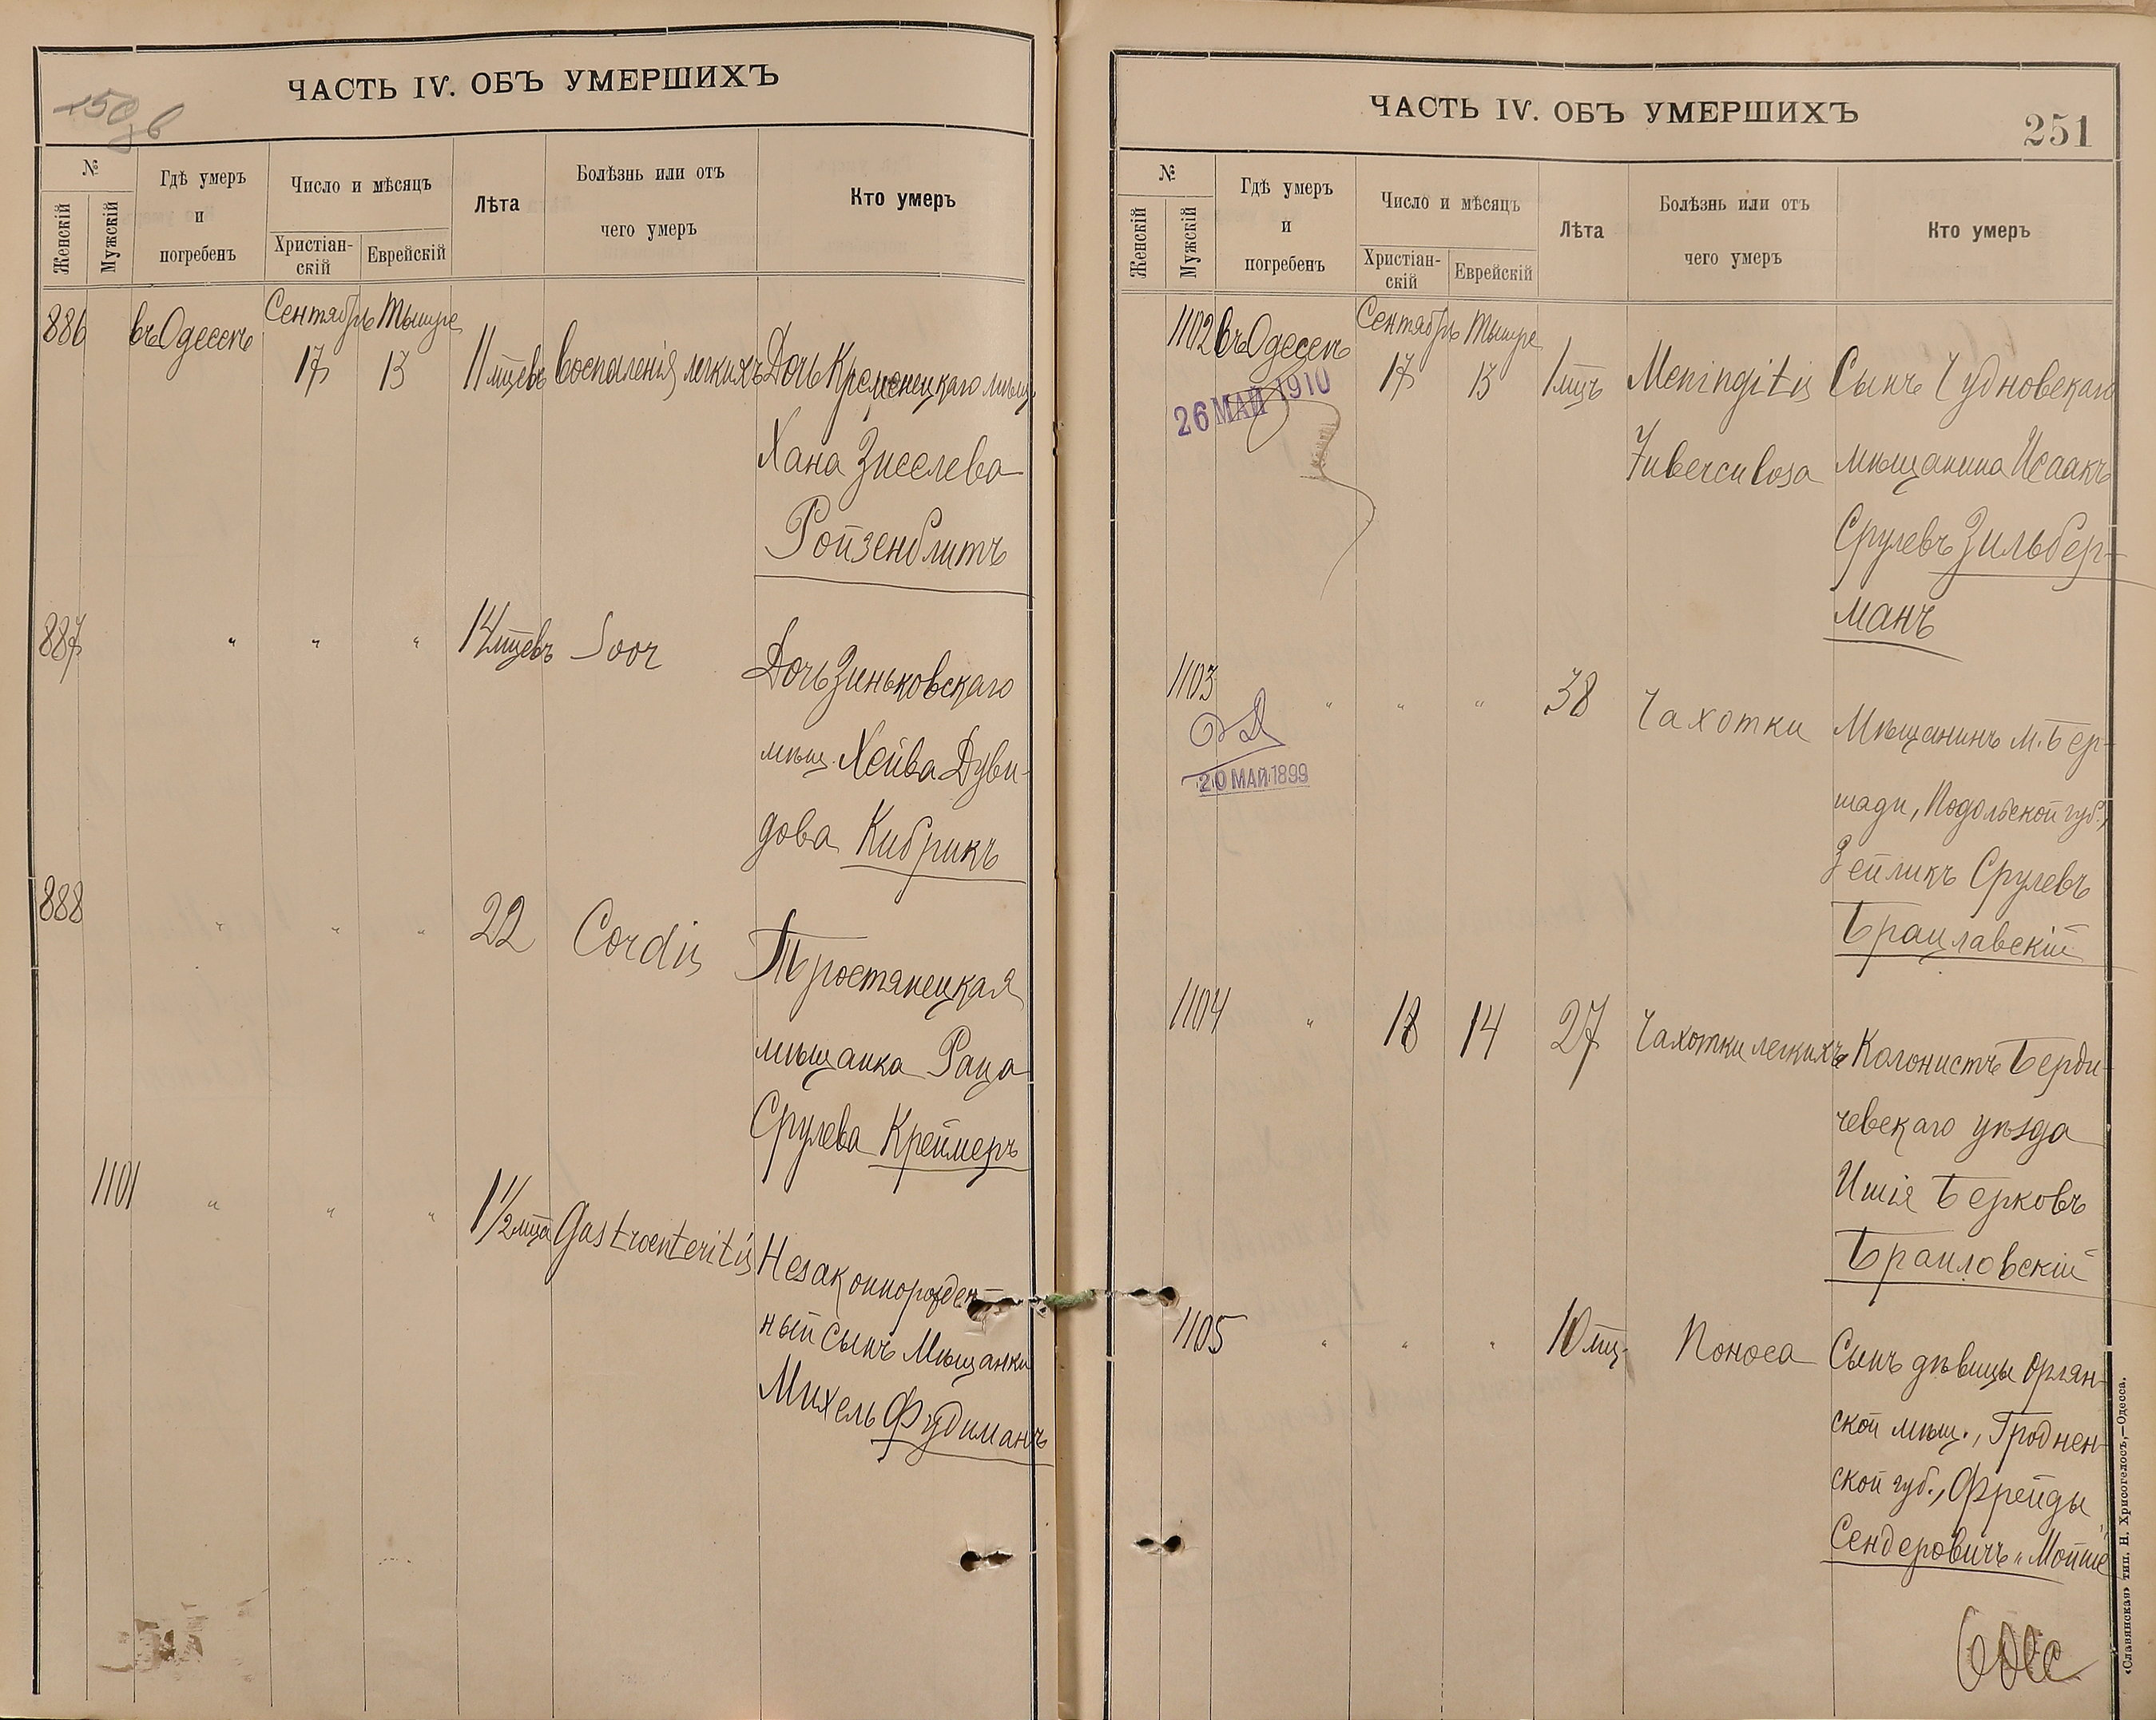 ЧАСТЬ IV. ОБЪ УМЕРШИХЪ
№
Женскій
Мужскій
Гдѣ умеръ
и
погребенъ
Число и мѣсяцъ
Христіан-
скій
Еврейскій
Лѣта
Болѣзнь или отъ
чего умеръ
Кто умеръ
886 въ Одессѣ Сентябрь Тышре
17 13 11 мцевъ воспаленія легкихъ Дочь Кременецкаго мѣщ.
Хана Зиселева
Ройзенблитъ
887 " " " 14 мцевъ Soor Дочь Зиньковскаго
мѣщ. Хейва Дуви-
дова Кибрикъ
888 " " " 22 Cordis Тростянецкая
мѣщанка Раца
Срулева Креймеръ
1101 " " " 1 1/2 мца Gastroenteritis Незаконнорожден-
ный сынъ Мѣщанки
Михель Фудиманъ
ЧАСТЬ IV. ОБЪ УМЕРШИХЪ
251
№
Женскій
Мужскій
Гдѣ умеръ
и
погребенъ
Число и мѣсяцъ
Христіан-
скій
Еврейскій
Лѣта
Болѣзнь или отъ
чего умеръ
Кто умеръ
1102 въ Одессѣ Сентябрь Тышре
17 13 1 мцъ Meningitis Сынъ Чудновскаго
26 МАЙ 1910
Tuberculosa мѣщанина Исаакъ
Срулевъ Зильбер-
манъ
1103 " " " 38 Чахотки Мѣщанинъ м. Бер-
20 МАЙ 1899
шади, Подольской губ.,
Зейликъ Срулевъ
Брацлавскій
1104 " 18 14 27 Чахотки легкихъ Колонистъ Берди-
чевскаго уѣзда
Ишія Берковъ
Браиловскій
1105 " " " 10 мц. Поноса Сынъ дѣвицы Орлян-
ской мѣщ., Гроднен-
ской губ., Фрейды
Сендеровичъ "Мойше"
«Славянская» тип. Н. Хрисогелосъ,—Одесса.